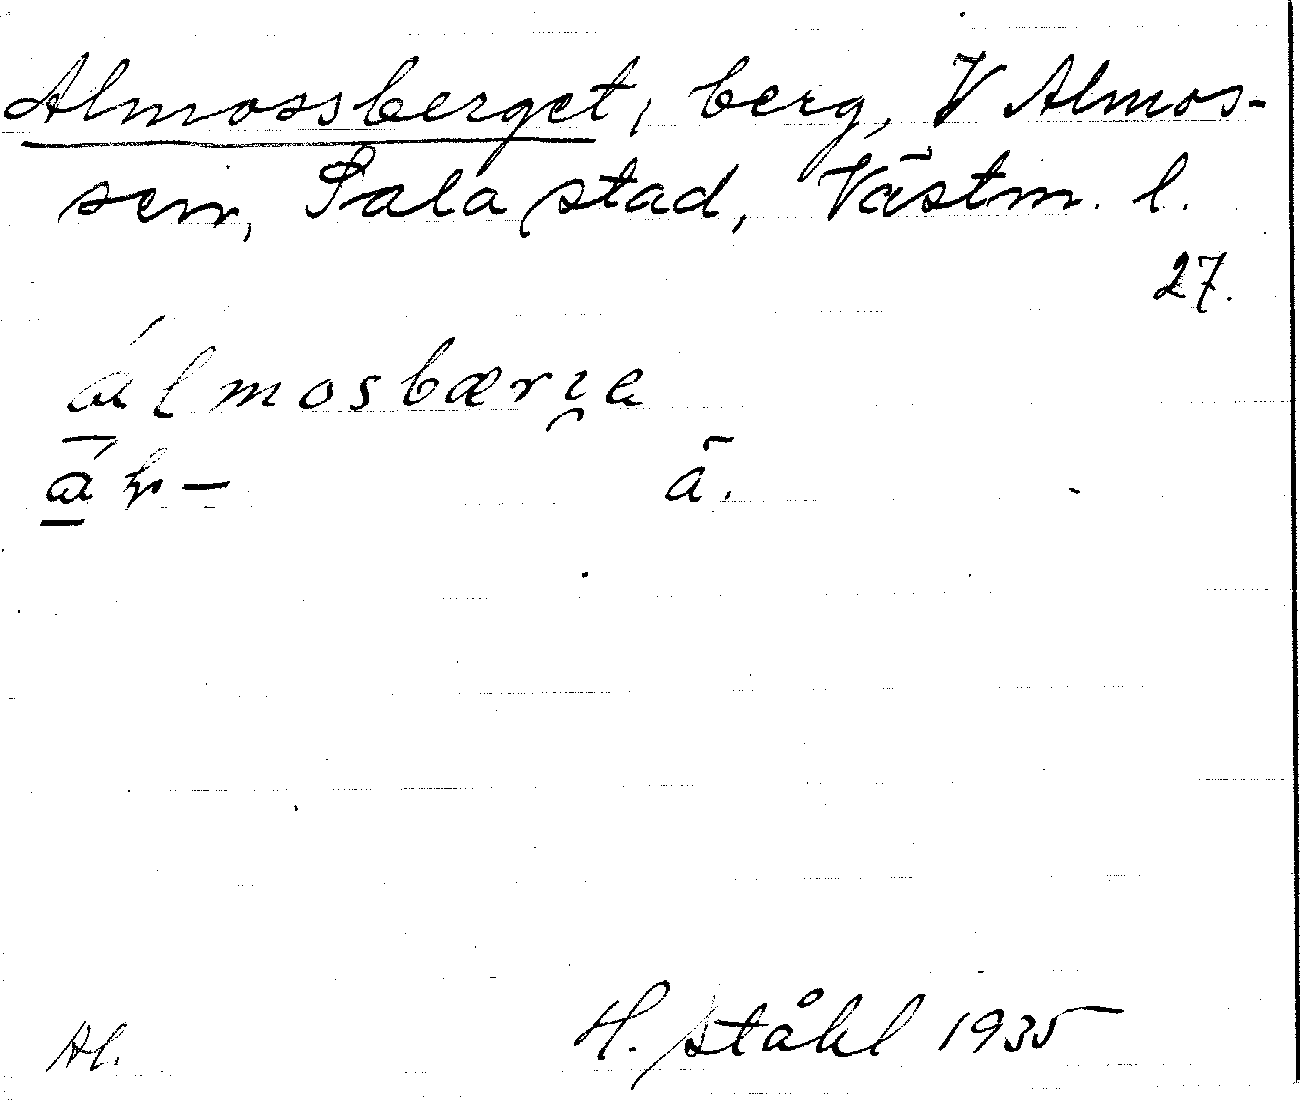 Almossberget, berg, V Almos-
sen, Sala stad, Västm. l.
27.
álmosbærı̯e
Al.
H. Ståhl 1935